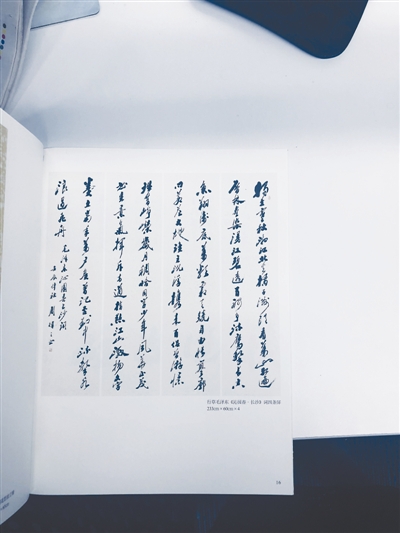 独立寒秋湘江北去橘子洲头看万山红遍
层林尽染漫江碧透百舸争流鹰击长空
鱼翔浅底万类霜天竞自由怅寥廓
问苍茫大地谁主沉浮携来百侣曾游忆
往昔峥嵘岁月稠恰同学少年风华正茂
书生意气挥斥方遒指点江山激扬文字
粪土当年万户侯曾记否到中流击水
浪遏飞舟 毛泽东沁园春长沙词
行草毛泽东《沁园春·长沙》词四条屏
233cm×60cm×4